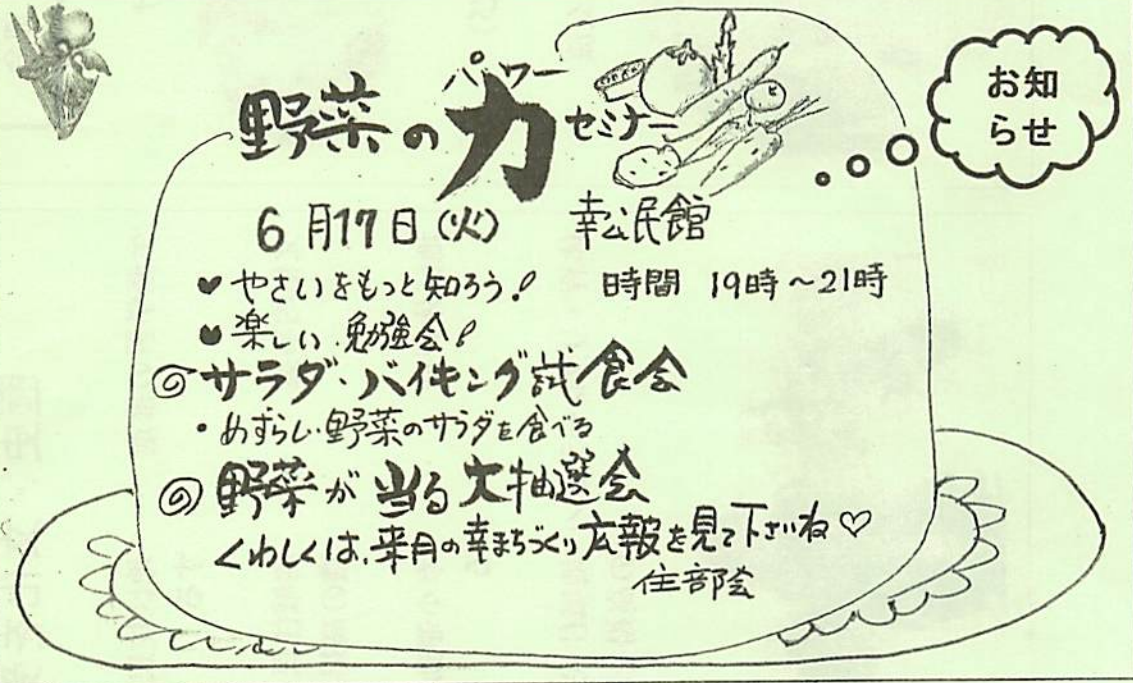 お知
らせ
パワー
野菜の力セミナー
6月17日(火) 幸公民館
♥やさいをもっと知ろう! 時間 19時~21時
♥楽しい勉強会!
◎サラダ・バイキング試食会
・めずらしい野菜のサラダを食べる
◎野菜が当る大抽選会
くわしくは、来月の幸まちづくり広報を見て下さいね♡
住部会